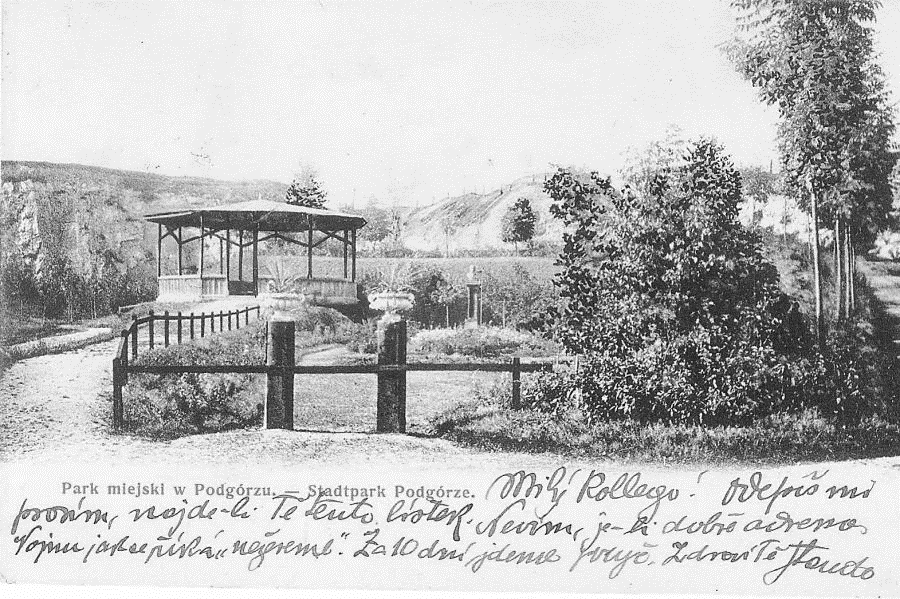 Park miejski w Podgórzu. — Stadtpark Podgórze. Milý Kollego! Odepiš mi
prosím, najde-li Tě tento lístek. Nevím, je-li dobře adresa.
Vojnu jak se říká „nežereme". Za 10 dní jdeme pryč. Zdraví Tě